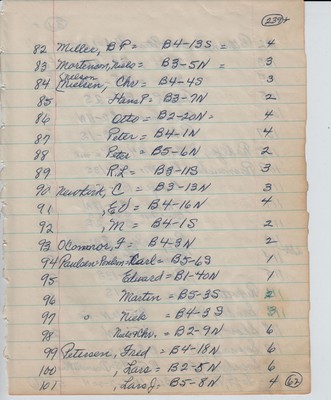 239
82 Miller, B P = B4-13S = 4
83 Mortenson, Niels = B3-5N = 3
nelson
84 Nielsen, Chr = B4-4S 3
85 Hans P = B3-7N 2
86 Otto = B2-20N = 4
87 Peter = B4-1N 4
88 Peter = B5-6N 2
89 R.L = B3-11S 3
90 Newkirk, C = B3-13N 3
91 , Ed = B4-16N 4
92 , M = B4-1S 2
93 OConnor, F = B4-3N 2
94 Paulsen-Poulson-Carl = B5-6S 1
95 Edward = B1-40N 1
96 Martin = B5-3S 2
97 " Nick = B4-3S 3
98 Niels Chr. = B2-9N 6
99 Petersen, Fred = B4-18N 6
100 , Lars = B2-5N 6
101 , Lars J = B5-8N 4 62